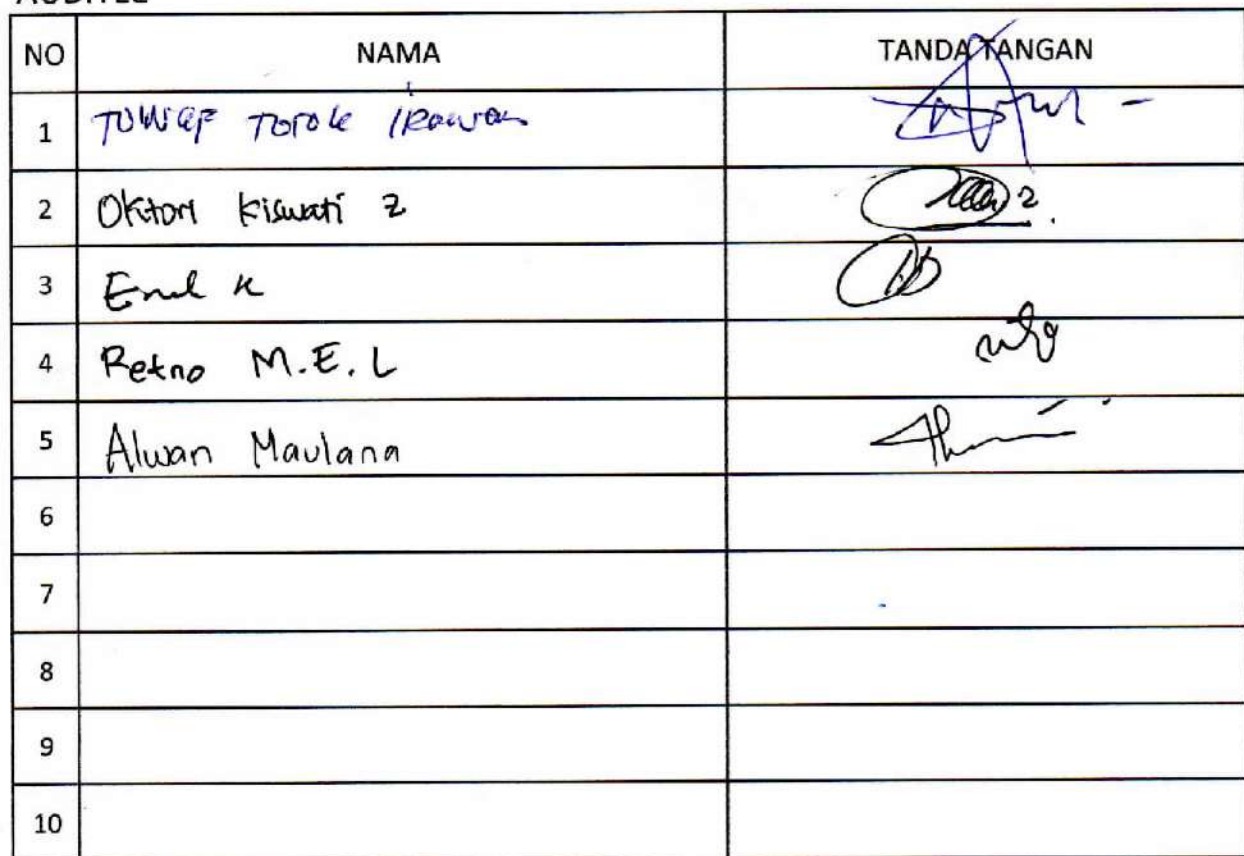 AUDITEE
NO NAMA TANDA TANGAN
1 Totok Irawan
2 Oktori Kiswati Z
3 K
4 Retno M.E.L
5 Alwan Maulana
6
7
8
9
10